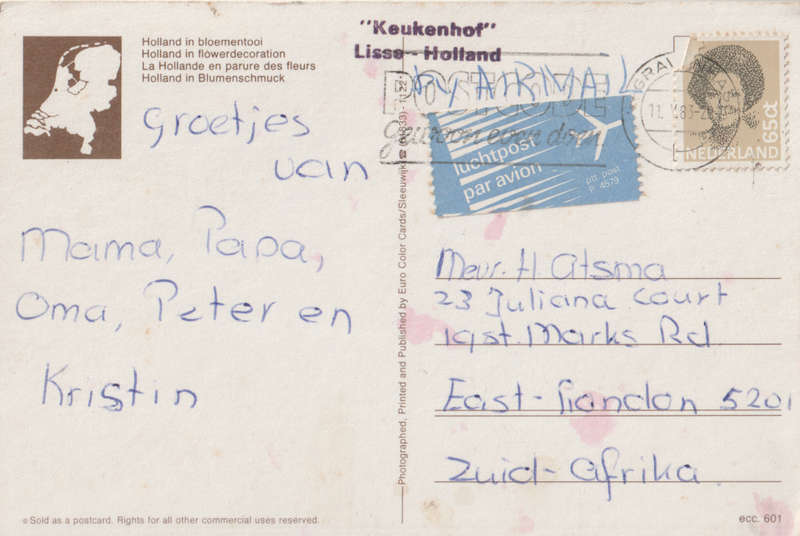 Holland in bloementooi
Holland in flowerdecoration
La Hollande en parure des fleurs
Holland in Blumenschmuck
Groetjes
van
Mama, Papa,
Oma, Peter en
Kristin
© Sold as a postcard. Rights for all other commercial uses reserved.
Photographed, Printed and Published by Euro Color Cards/Sleeuwijk
"Keukenhof"
Lisse - Holland
by AIRMAL
gewoon even doen
luchtpost
par avion
ptt post
P 4579
65ct
NEDERLAND
Mevr. H Atsma
23 Juliana Court
19 St. Marks Rd.
East-London 5201
Zuid-Afrika
ecc. 601